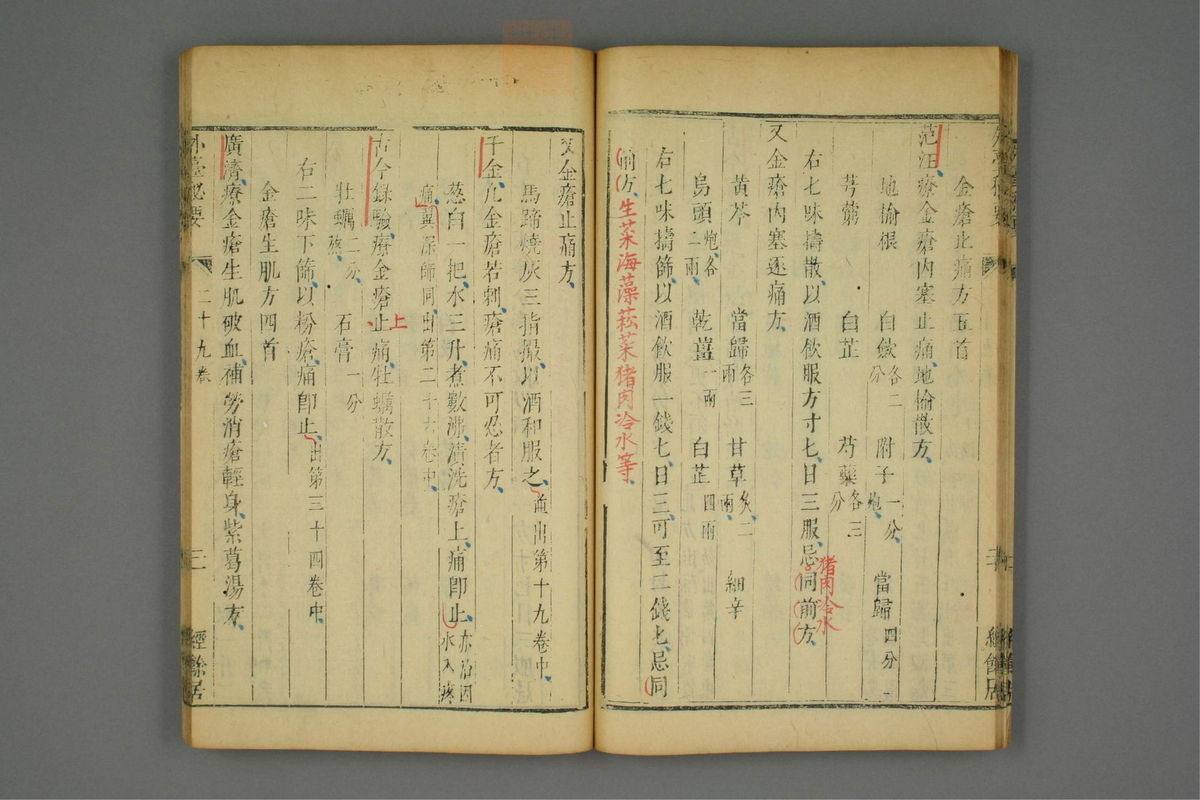 金瘡止痛方五首
范汪療金瘡內塞止痛地榆散方
地榆根 白斂各二分 附子一分炮 當歸四分
芎藭 白芷 芍藥各三分
右七味擣散以酒飲服方寸匕日三服忌同前方
猪肉冷水
又金瘡內塞逐痛方
黃芩 當歸各三兩 甘草炙二兩 細辛
烏頭炮各二兩 乾薑一兩 白芷四兩
右七味擣篩以酒飲服一錢匕日三可至二錢匕忌同
前方生菜海藻菘菜猪肉冷水等
又金瘡止痛方
馬蹄燒灰三指撮以酒和服之並出第十九卷中
千金凡金瘡若刺瘡痛不可忍者方
葱白一把水三升煮數沸漬洗瘡上痛卽止亦治因水入疼
痛冀深師同出第二十六卷中
古今錄驗療金瘡止痛牡蠣散方
上
牡蠣二分熬 石膏一分
右二味下篩以粉瘡痛卽止出第三十四卷中
金瘡生肌方四首
廣濟療金瘡生肌破血補勞消瘡輕身紫葛湯方
外臺秘要 二十九卷 三 經餘居